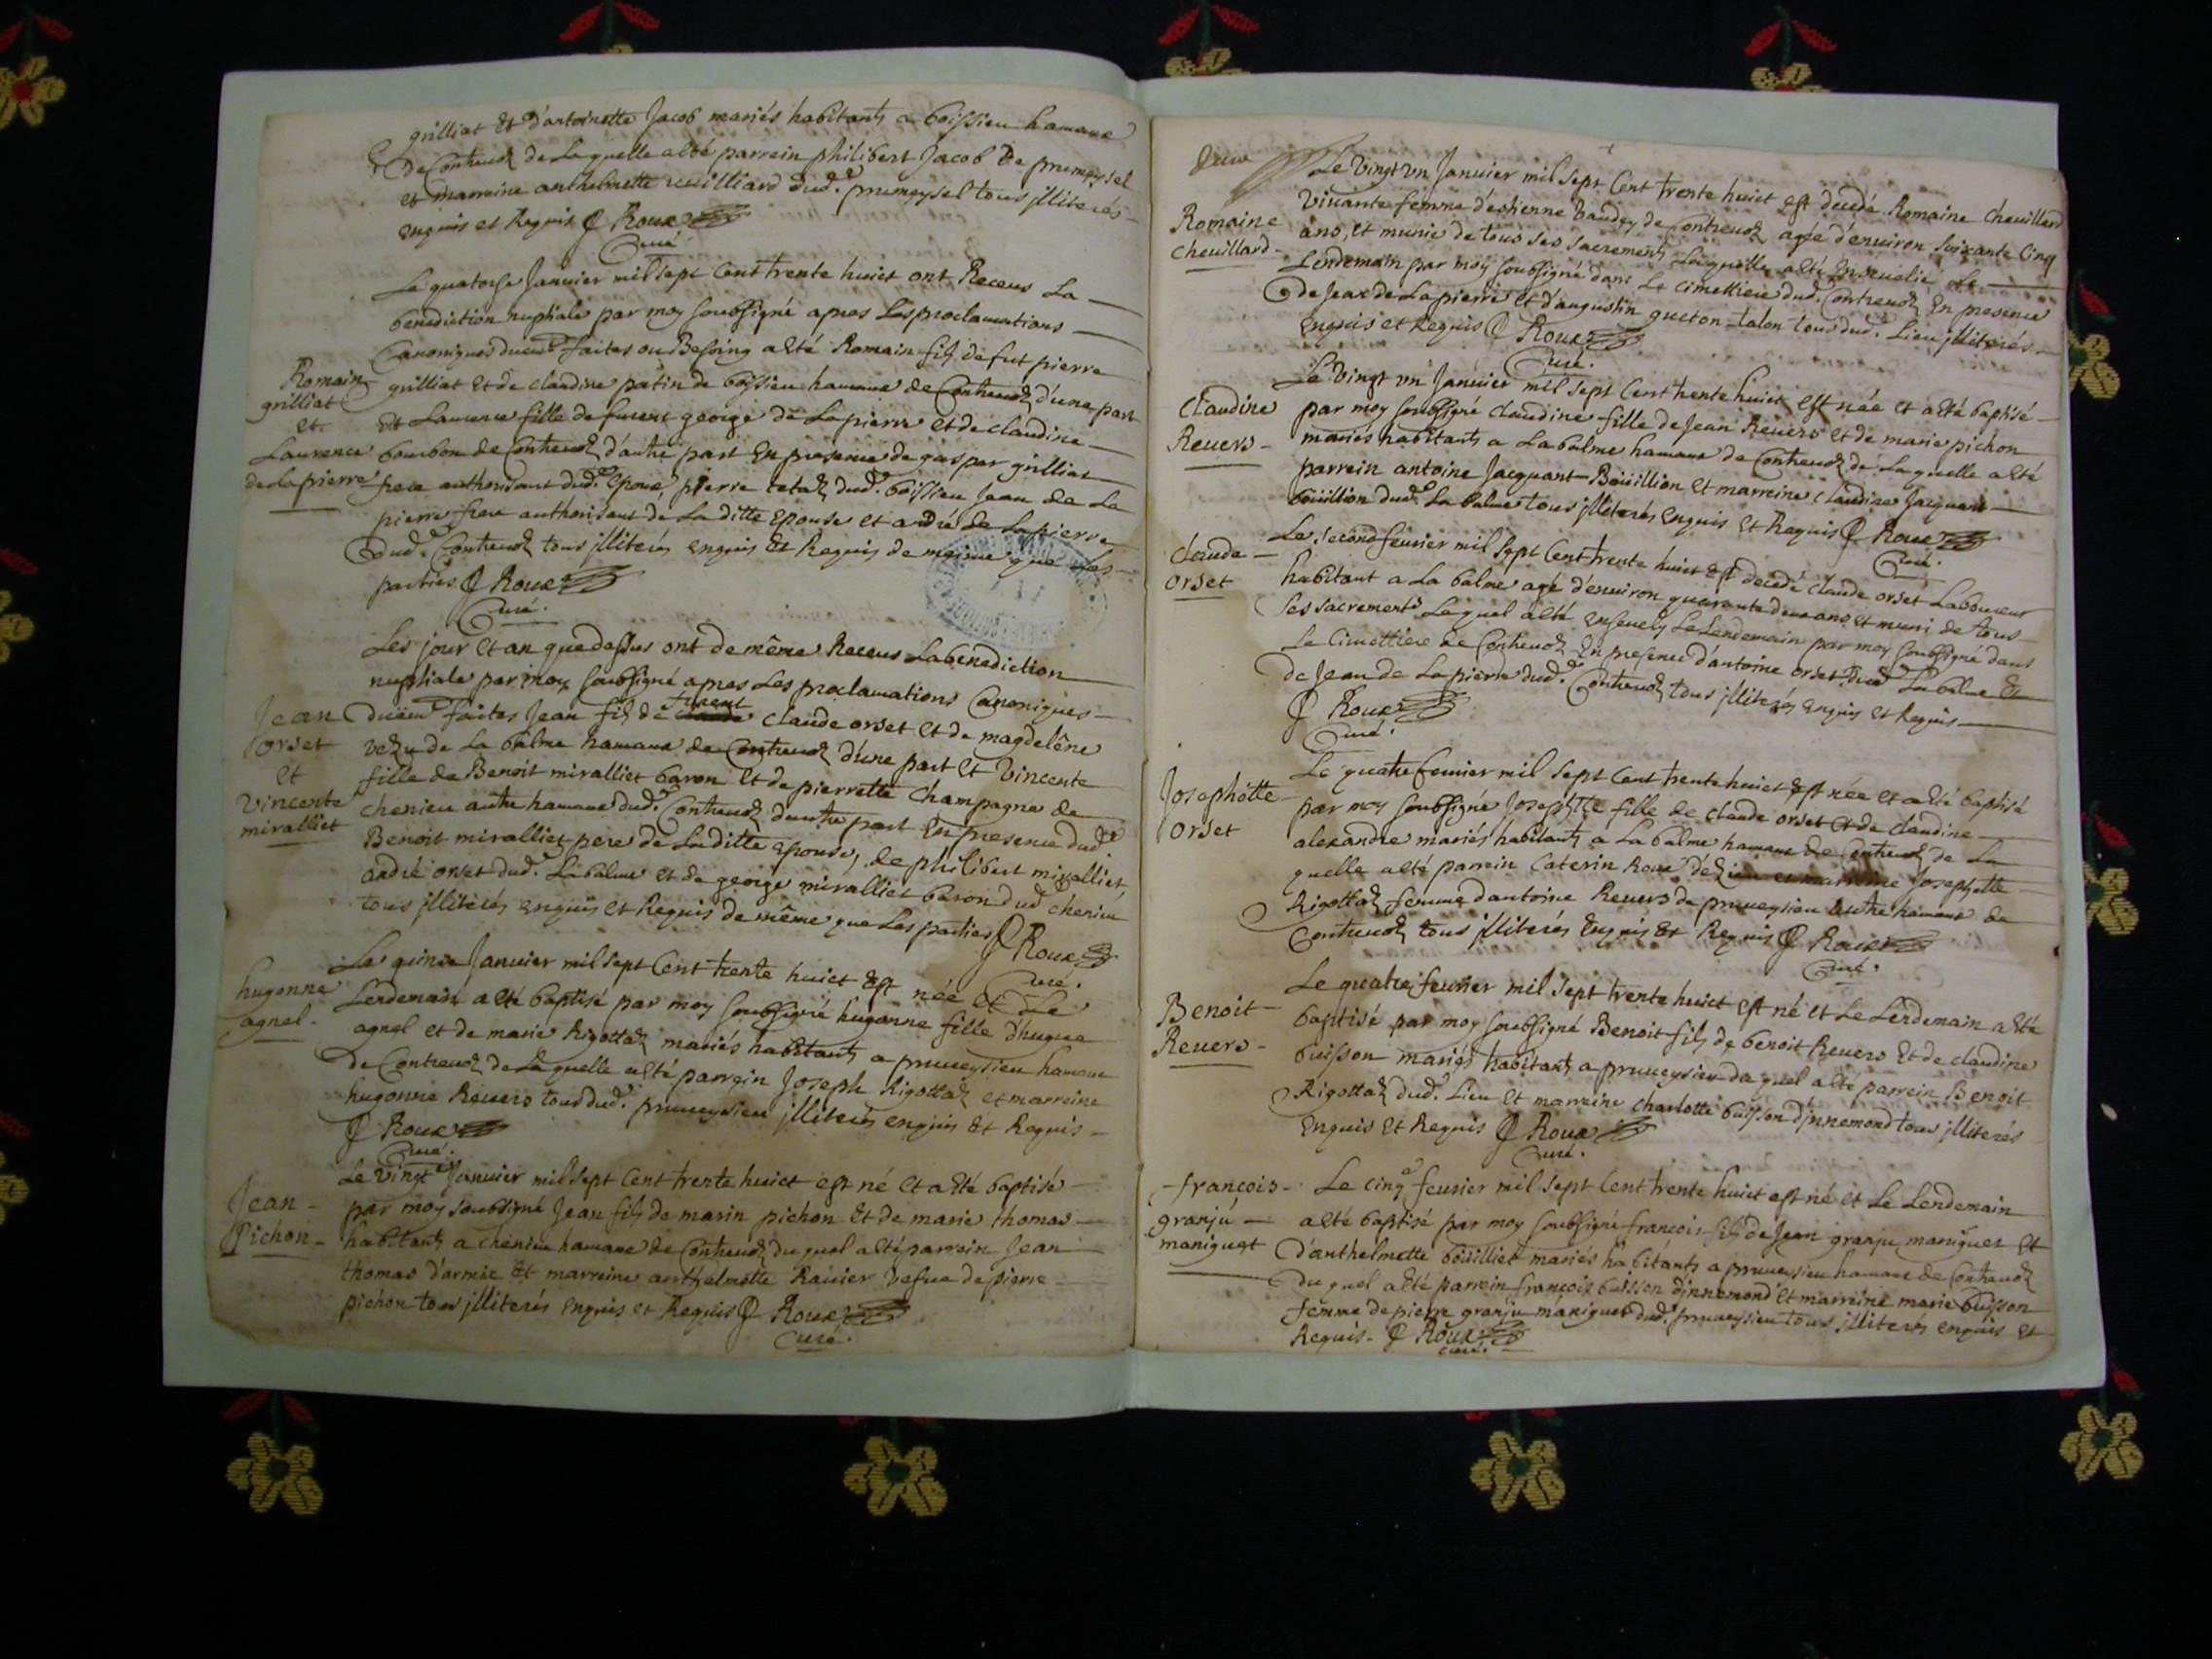 grilliat Et d'antoinette Jacob mariés habitants a boissieu hamaux
de Contreuoz de Laquelle a Eté parrein philibert Jacob De premeysel
et marreine anthelmette uuilliard dud.ᵗ premeysel tous jlliterés
enquis et Requis Roux
Curé
Le quatorze Januier mil sept Cent trente huict ont Receus La
benediction nuptiale par moy soubsigné apres Les proclamations
Canoniques duem.ᵗ faites ou Besoing a Eté Romain fils de fut pierre
Romain
grilliat Et de claudine patin de boissieu hamaux de Contreuoz d'une part
grilliat
et
Et Laurence fille de furent george de Lapierre et de claudine
Laurence
bourbon de Contreuoz d'autre part En presence de gasper grilliat
de la pierre
frere authorisant dud.ᵗ Epoux, pierre tetaz dud.ᵗ boissieu Jean de La
pierre frere authorisant de La ditte Epouse et andré de Lapierre
dud.ᵗ Contreuoz tous jlliterés enquis Et Requis de mesme que Les
parties Roux
Curé.
Les jour et an que dessus ont de même Receus La benediction
nuptiale par moy soubsigné apres Les proclamations Canoniques
Jean
duëm.ᵗ faites Jean fils de furent claude orset et de magdelêne
orset
vezu de La balme hamaux de Contreuoz d'une part et Vincente
et
fille de Benoit miralliet baron Et de pierrette Champagne de
Vincente
miralliet
chenieu autre hamaux dud.ᵗ Contreuoz dautre part En presence dud.ᵗ
Benoit miralliet pere de Laditte epouse, de philibert miralliet,
andré orset dud.ᵗ Labalme et de george miralliet baron dud.ᵗ chenieu
tous jlliterés enquis et Requis de même que Les parties Roux
Curé.
Le quinze Januier mil sept Cent trente huict Est née et Le
hugonne
agnel
Lendemain a Eté baptisé par moy soubsigné hugonne fille d'hugue
agnel et de marie Rigottaz mariés habitants a pruueysieu hamaux
de Contreuoz de Laquelle a eté parrein Joseph Rigottaz et marreine
hugonne Reuers tous dud.ᵗ pruueysieu jlliterés enquis Et Requis
Roux
Curé.
Le vingt Januier mil sept Cent trente huict est né et a Eté baptisé
Jean
par moy soubsigné Jean fils de marin pichon Et de marie thomas
Pichon
habitants a chenieu hamaux de Contreuoz du quel a eté parrein Jean
thomas d'armix Et marreine anthelmette Rauier vefue de pierre
pichon tous jlliterés enquis et Requis Roux
Curé.
deux
Le Vingt vn Januier mil sept Cent trente huict est decedé Romaine Cheuillard
Romaine
Viuante femme d'estienne baudey de Contreuoz agée d'enuiron soixante Cinq
Cheuillard
ans, et munie de tous ses sacrements Laquelle a Eté Enseuelie Le
Lendemain par moy soubsigné dans Le Cimettiere dud.ᵗ Contreuoz En presence
de Jean de Lapierre et d'augustin gueton-talon tous dud.ᵗ Lieu jlliterés
enquis et Requis Roux
Curé.
Le Vingt vn Januier mil sept Cent trente huict est née et a Eté baptisé
Claudine
par moy soubsigné Claudine fille de Jean Reuers et de marie pichon
Reuers
mariés habitants a Labalme hamaux de Contreuoz de Laquelle a Eté
parrein antoine Jacquant-Boüillion et marreine Claudine Jacquant
boüillion dud.ᵗ La balme tous jlliterés enquis et Requis Roux
Curé.
Le second feurier mil sept Cent trente huict Est decedé Claude orset Laboureur
Claude
orset
habitant a La balme agé d'enuiron quarante deux ans et muni de tous
ses sacrements Lequel a Eté enseuely Le Lendemain par moy soubsigné dans
Le Cimettiere de Contreuoz En presence d'antoine orset dud.ᵗ La balme Et
de Jean de Lapierre dud.ᵗ Contreuoz tous jlliterés enquis et Requis
Roux
Curé.
Le quatre feurier mil sept Cent trente huict est née et a Eté baptisé
Josephette
par moy soubsigné Josephtte fille de claude orset et de claudine
orset
alexandre mariés habitants a La balme hamaux de Contreuoz de La
quelle a eté parrein Caterin Roux et marreine Josephtte
Rigottaz femme d'antoine Reuers de pruueysieu autre hamaux de
Contreuoz tous jlliterés enquis et Requis Roux
Curé.
Le quatre feurier mil sept trente huict est né et Le Lendemain a Eté
Benoit
baptisé par moy soubsigné Benoit fils de benoit Reuers Et de claudine
Reuers
buisson mariés habitants a pruueysieu du quel a Eté parrein Benoit
Rigottaz dud.ᵗ Lieu et marreine charlotte buisson d'jnnemond tous jlliterés
enquis et Requis Roux
Curé.
françois
Le cinq feurier mil sept Cent trente huict est né et Le Lendemain
granju
a Eté baptisé par moy soubsigné françois fils de Jean granju maniguet Et
maniguet
d'anthelmette boüilliet mariés habitants a pruueysieu hamaux de Contreuoz
du quel a Eté parrein françois buisson d'jnnemond et marreine marie buisson
femme de pierre granju maniguet dud.ᵗ pruueysieu tous jlliterés enquis et
Requis Roux
curé.